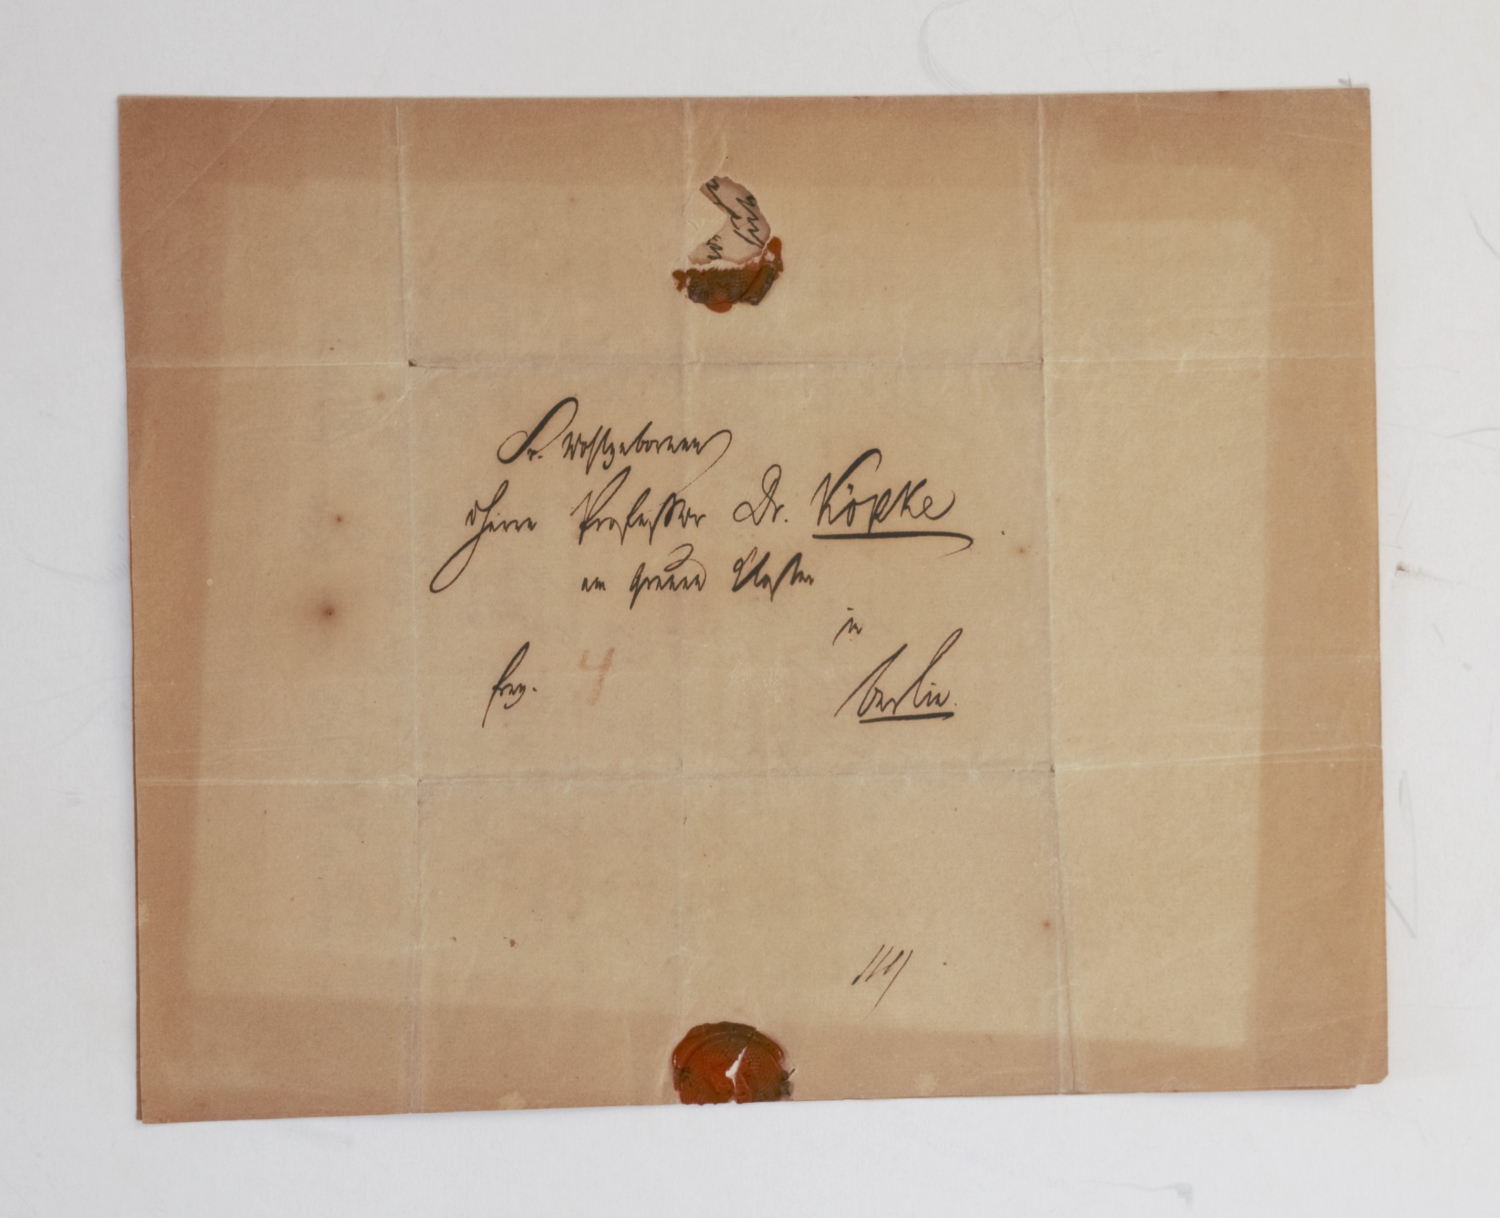 Sr. Wohlgeboren
Herrn Professor Dr. Köpke
am grauen Kloster
in
frey. 4
Berlin.